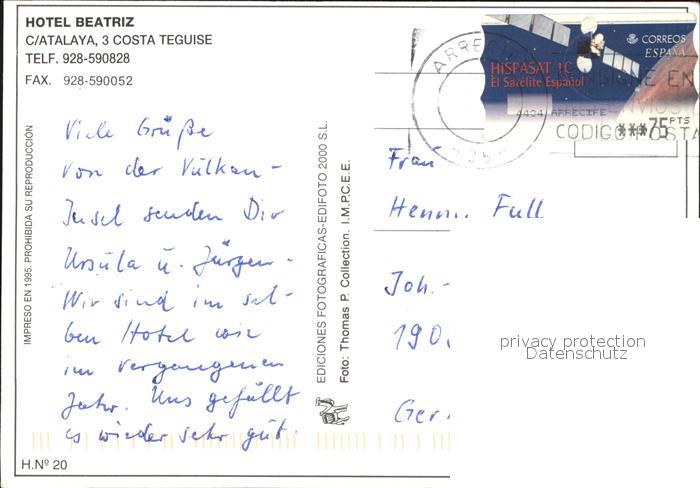 HOTEL BEATRIZ
C/ATALAYA, 3 COSTA TEGUISE
TELF. 928-590828
FAX. 928-590052
Viele Grüße
von der Vulkan-
Insel senden Dir
Ursula u. Jürgen.
Wir sind im sel-
ben Hotel wie
im vergangenen
Jahr. Uns gefällt
es wieder sehr gut.
H.Nº 20
IMPRESO EN 1995. PROHIBIDA SU REPRODUCCIÓN
EDICIONES FOTOGRAFICAS-EDIFOTO 2000 S.L.
Foto: Thomas P. Collection. I.M.P.C.E.E.
CORREOS
ESPAÑA
HISPASAT 1C
El Satélite Español
4494 ARRECIFE
***75 PTS
ARRECIFE
CODIGO POSTA
Frau
Full
Joh.-
190
Ger.
privacy protection
Datenschutz